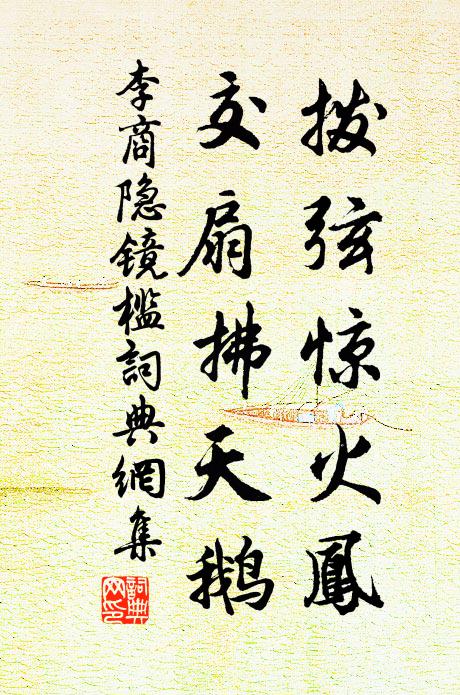 拨弦惊火鳳
交扇拂天鹅
李商隐镜槛詞典網集
詞典網印